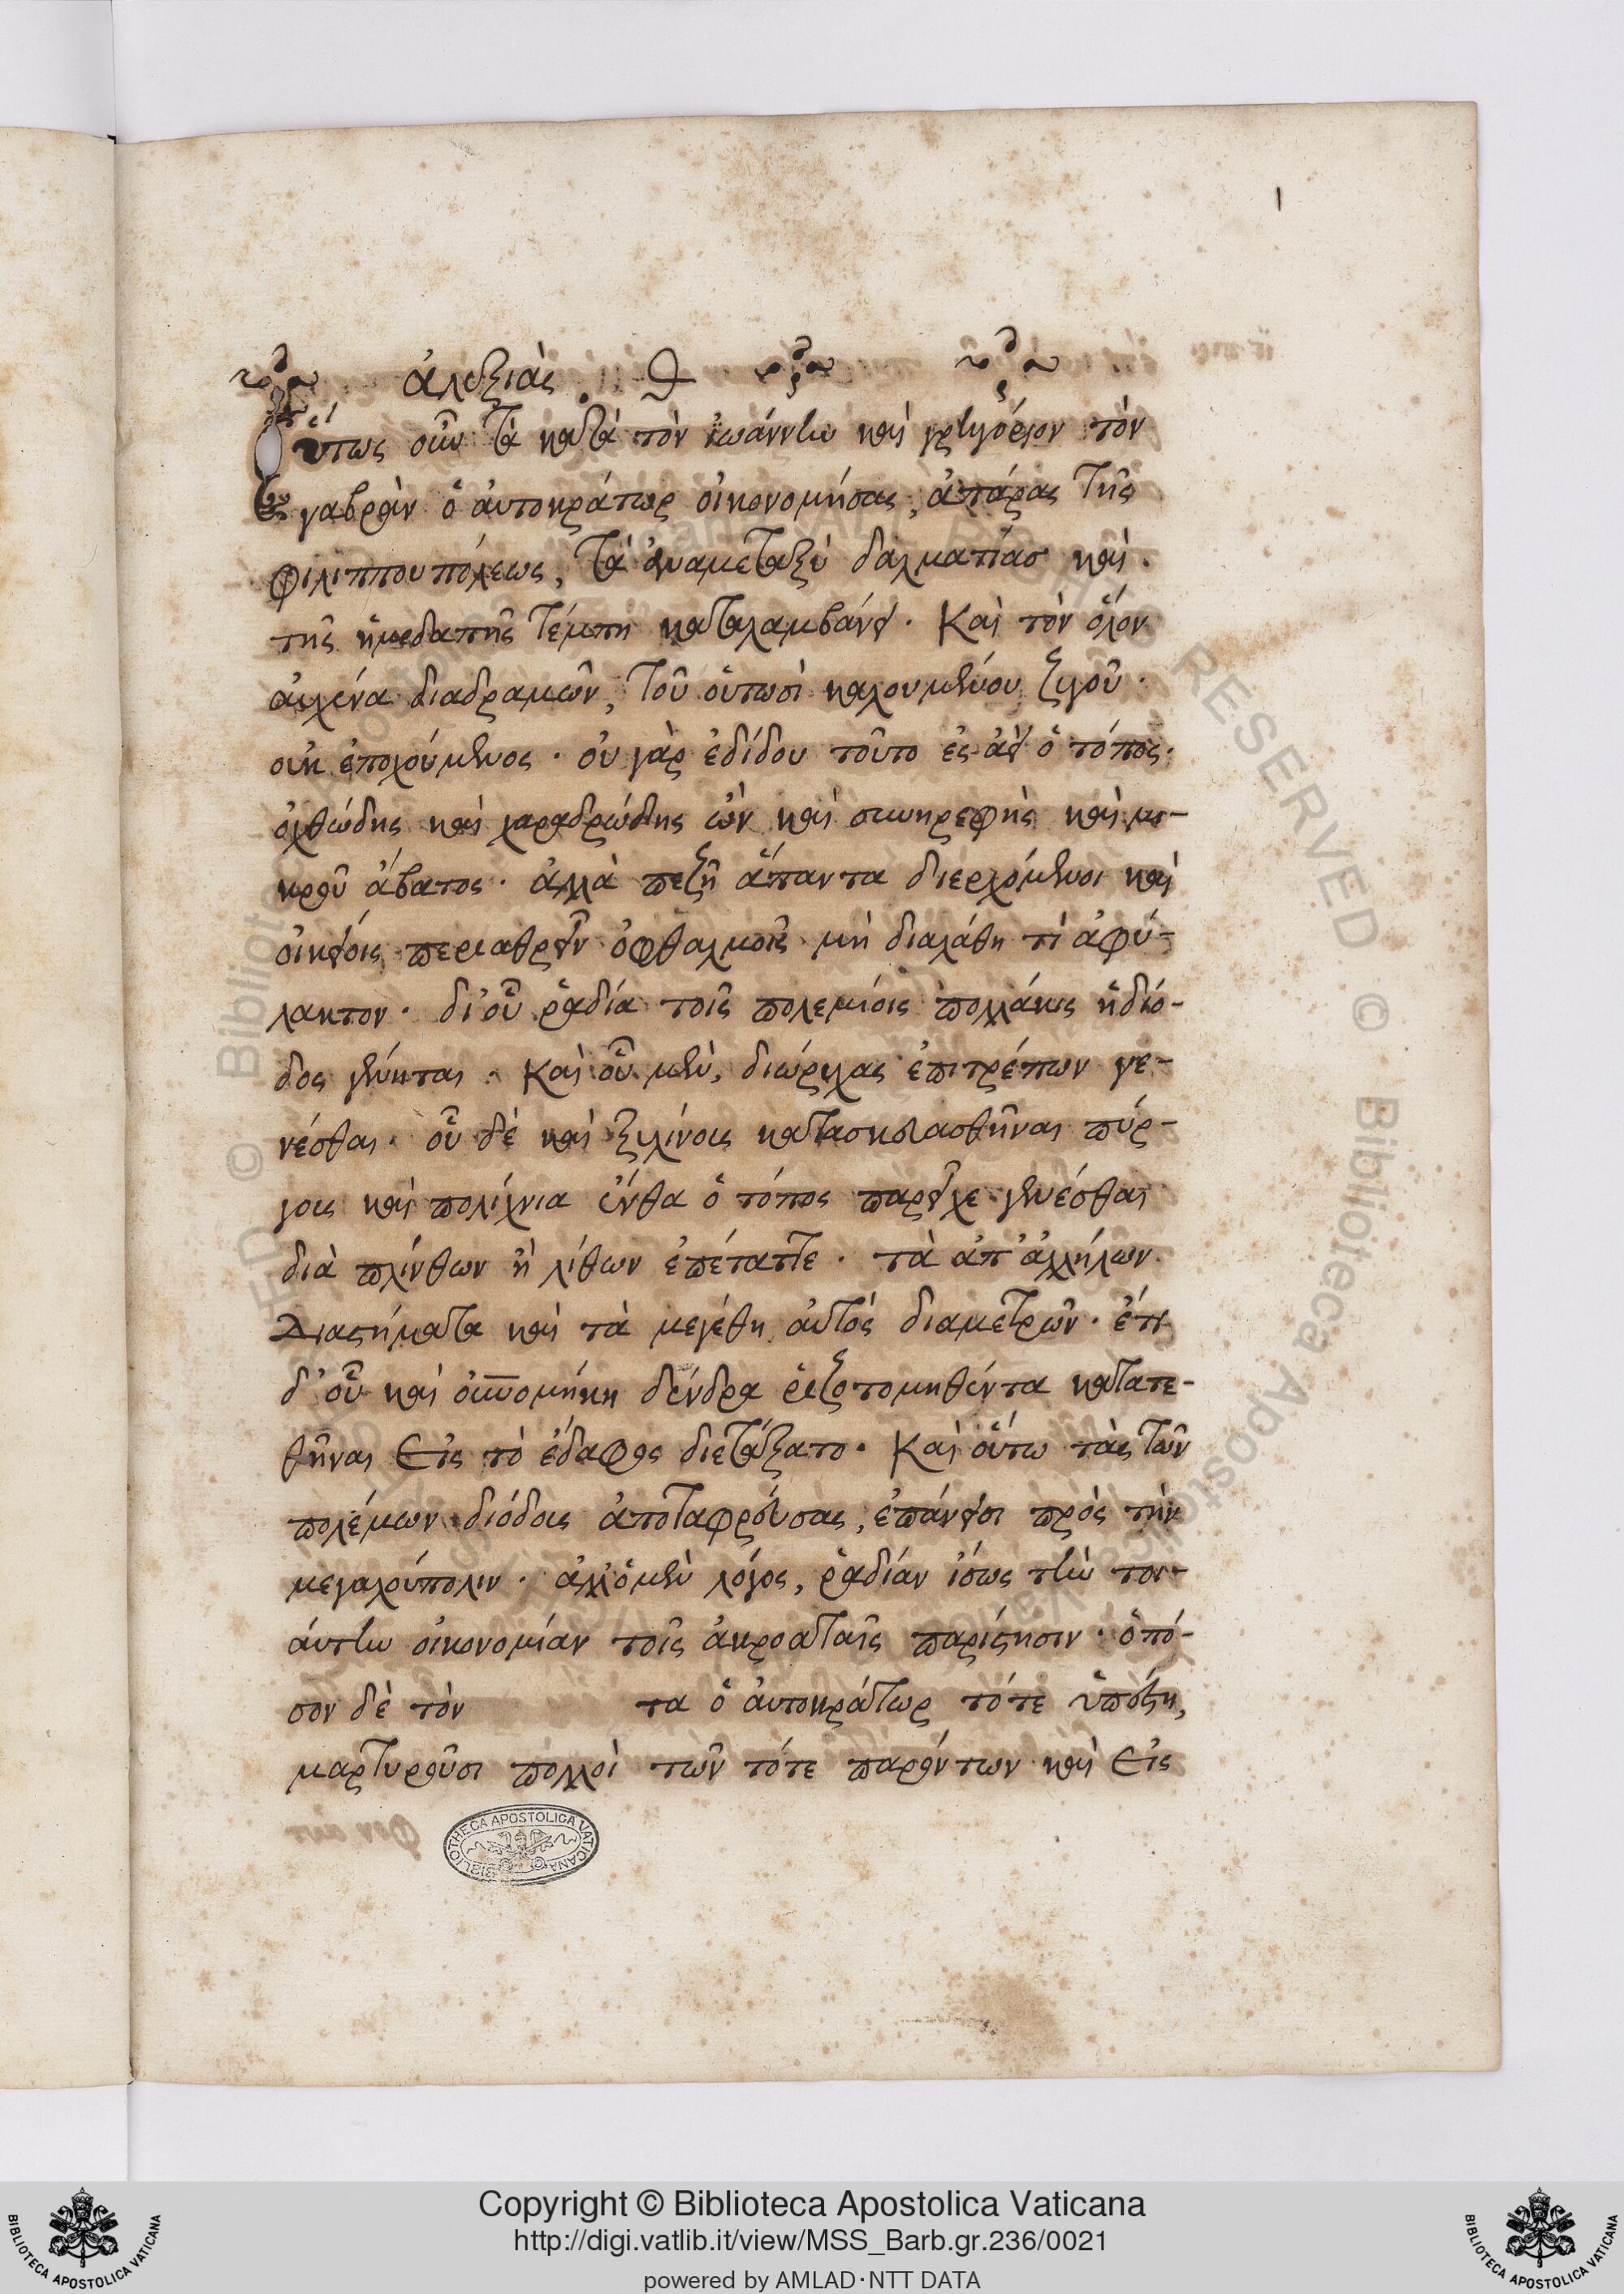 1
ἀλεξιὰς . θ
Οὕτως οὖν τὰ κατὰ τὸν ἰωάννην καὶ γρηγόριον τὸν
γαβρὰν ὁ αὐτοκράτωρ οἰκονομήσας, ἀπάρας τῆς
φιλιππουπόλεως, τὰ ἀναμεταξὺ δαλματίασ καὶ.
τῆς ἡμεδαπῆς τέμπη καταλαμβάνει. Καὶ τὸν ὅλον
αὐχένα διαδραμῶν, τοῦ οὑτωσὶ καλουμένου ζυγοῦ.
οὐκ ἐποχούμενος. οὐ γὰρ ἐδίδου τοῦτο ἐς ἀεὶ ὁ τόπος.
ὀχθώδης καὶ χαραδρώδης ὢν καὶ συνηρεφὴς καὶ μι-
κροῦ ἄβατος. ἀλλὰ πεζῆ ἅπαντα διερχόμενοι καὶ
οἰκείοις περιαθρεῖν ὀφθαλμοῖς μὴ διαλάθη τὶ ἀφύ-
λακτον. δι' οὗ ῥαδία τοῖς πολεμίοις πολλάκις ἡ δίο-
δος γένηται. Καὶ οὗ μὲν, διώρυχας ἐπιτρέπων γε-
νέσθαι. οὗ δὲ καὶ ξυλίνοις κατασκευασθῆναι πύρ-
γοις καὶ πολίχνια ἔνθα ὁ τόπος παρεῖχε γενέσθαι
διὰ πλίνθων ἢ λίθων ἐπέταττε. τὰ ἀπ' ἀλλήλων
Διαστήματα καὶ τὰ μεγέθη αὐτὸς διαμετρῶν. ἔτι
δ' οὗ καὶ οὐρανομήκη δένδρα ῥιζοτομηθέντα κατατε-
θῆναι εἰς τὸ ἔδαφος διετάξατο. Καὶ οὕτω τὰς τῶν
πολέμων διόδοις ἀποταφρεύσας, ἐπάνεισι πρὸς τὴν
μεγαλούπολιν. ἀλλ' ὁ μὲν λόγος, ῥαδίαν ἴσως τὴν τοι-
αύτην οἰκονομίαν τοῖς ἀκροαταῖς παρίστησιν. ὁπό-
σον δὲ τὸν τα ὁ αὐτοκράτωρ τότε ὑπέστη,
μαρτυροῦσι πολλοὶ τῶν τότε παρόντων καὶ εἰς
BIBLIOTHECA APOSTOLICA VATICANA
Copyright © Biblioteca Apostolica Vaticana
http://digi.vatlib.it/view/MSS_Barb.gr.236/0021
powered by AMLAD·NTT DATA
BIBLIOTECA APOSTOLICA VATICANA
BIBLIOTECA APOSTOLICA VATICANA